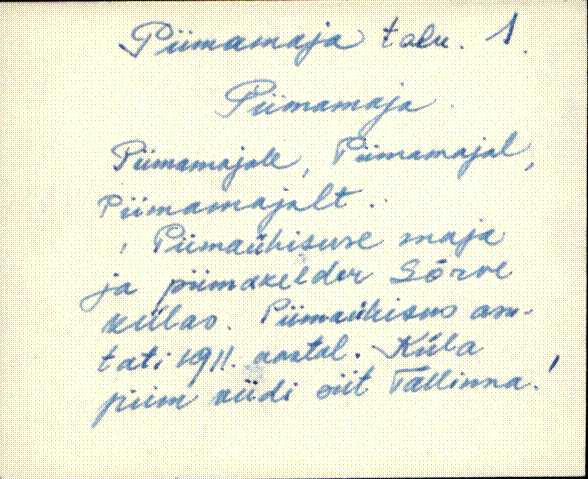 Piimamaja talu. 1.
Piimamaja.
Piimamajale, Piimamajal,
Piimamajalt.
' Piimaühisuse maja
ja piimakelder Sõrve
külas. Piimaühisus asu-
tati 1911. aastal. Küla
piim viidi siit Tallinna.'